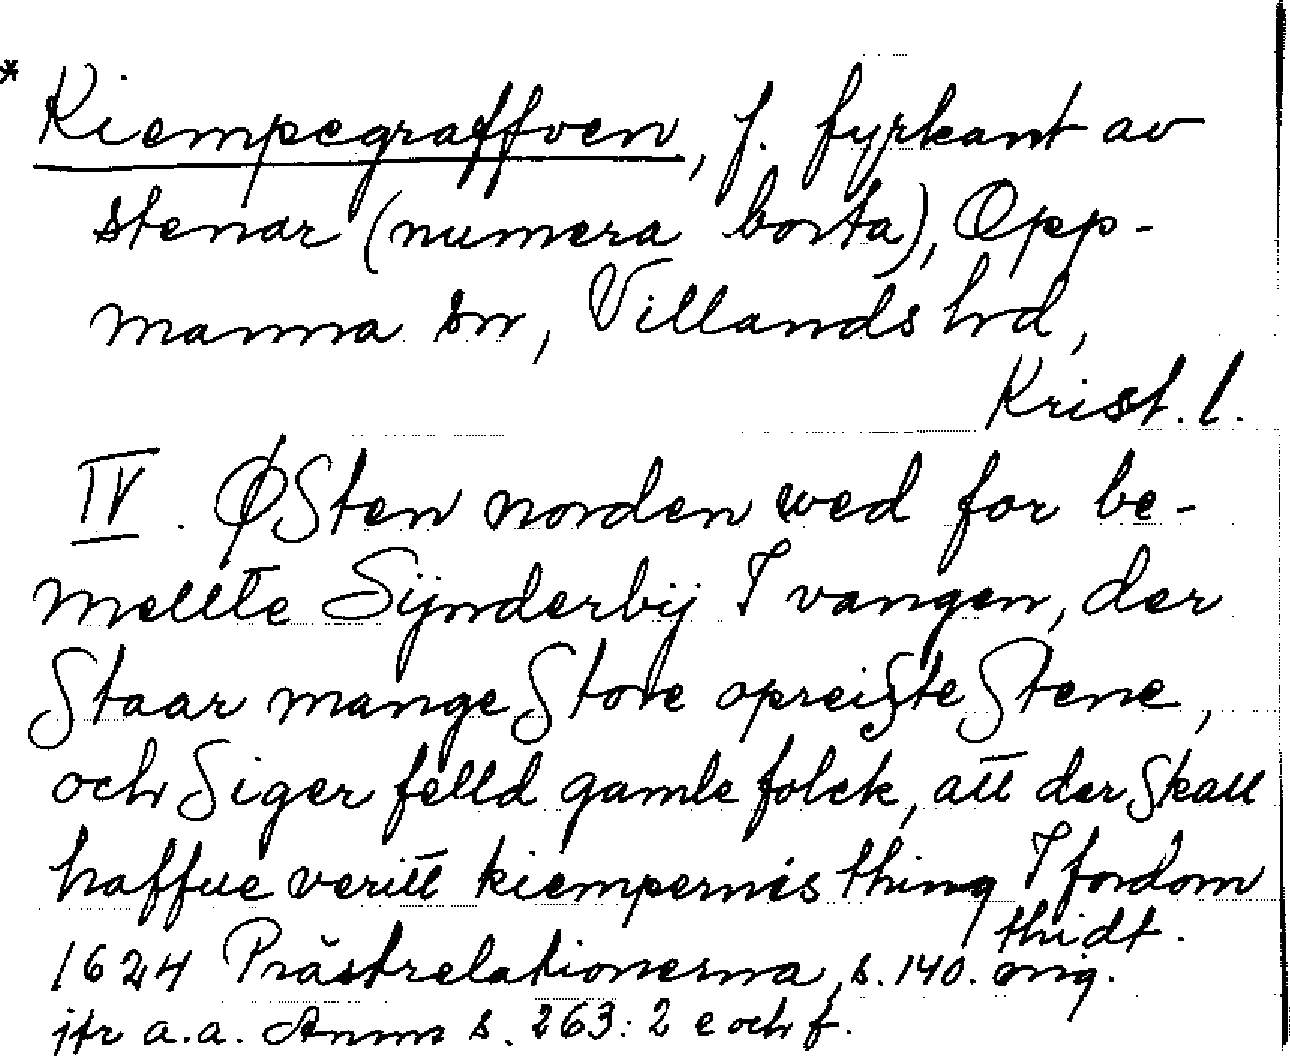 * Kiempegraffven, f. fyrkant av
stenar (numera borta), Opp-
manna sn, Villands hrd,
Krist. l.
IV. ØSten norden wed for be-
mellte Sÿnderbÿ I vangen, der
Staar mange Store opreiste Stene,
och Siger felld gamle folck, att der Skall
haffue veritt kiempernis thing I fordom
thidt.
1624 Prästrelationerna, s. 140. orig.
jfr a.a. Anm s. 263: 2 e och f.